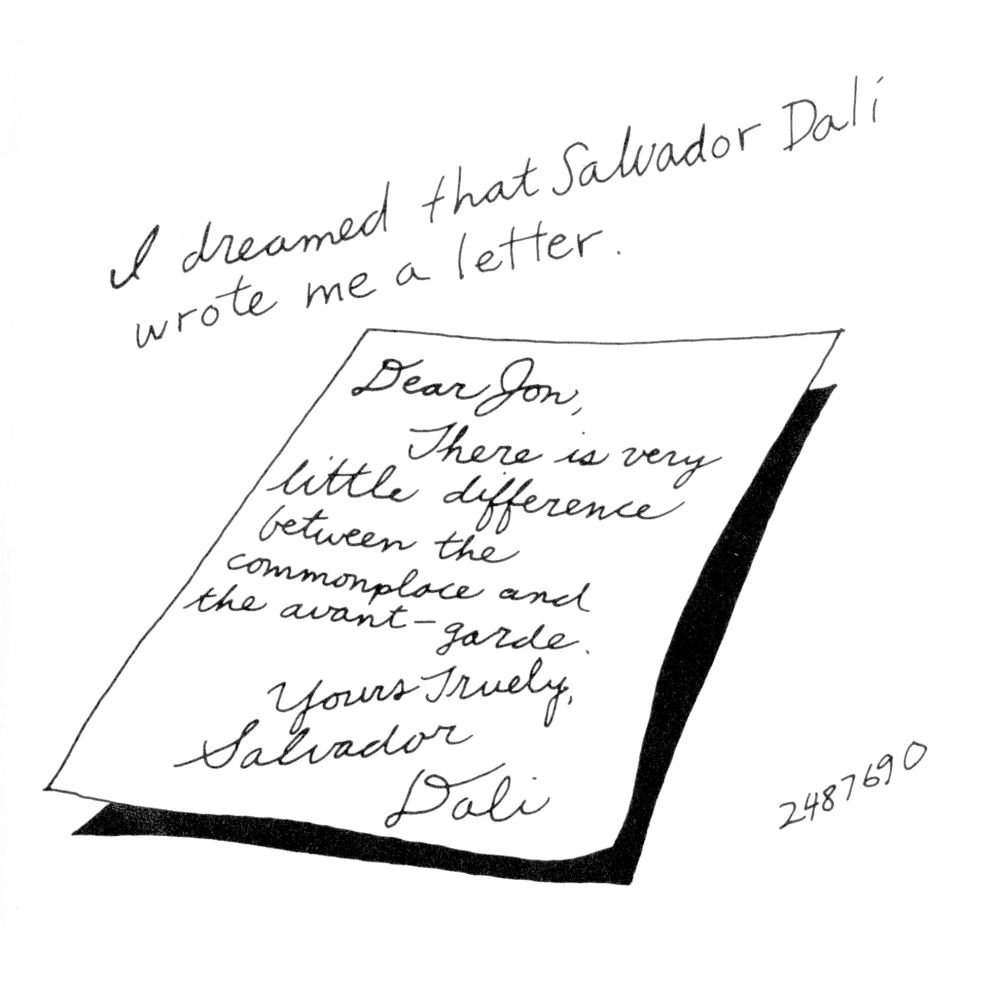 I dreamed that Salvador Dali
wrote me a letter.
Dear Jon,
There is very
little difference
between the
commonplace and
the avant-garde.
Yours Truely,
Salvador
Dali
2487690